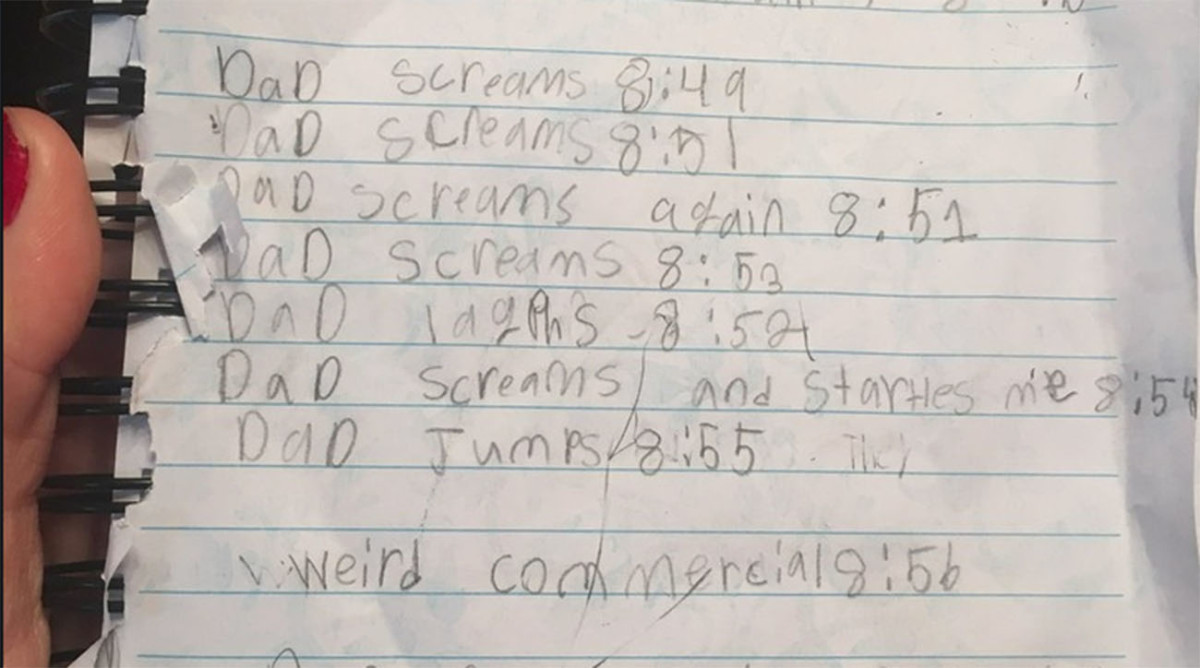 DaD screams 8:49
DaD screams 8:51
DaD screams again 8:51
DaD screams 8:53
DaD laghs 8:54
DaD screams and startles me 8:54
DaD Jumps 8:55
weird commercial 8:56